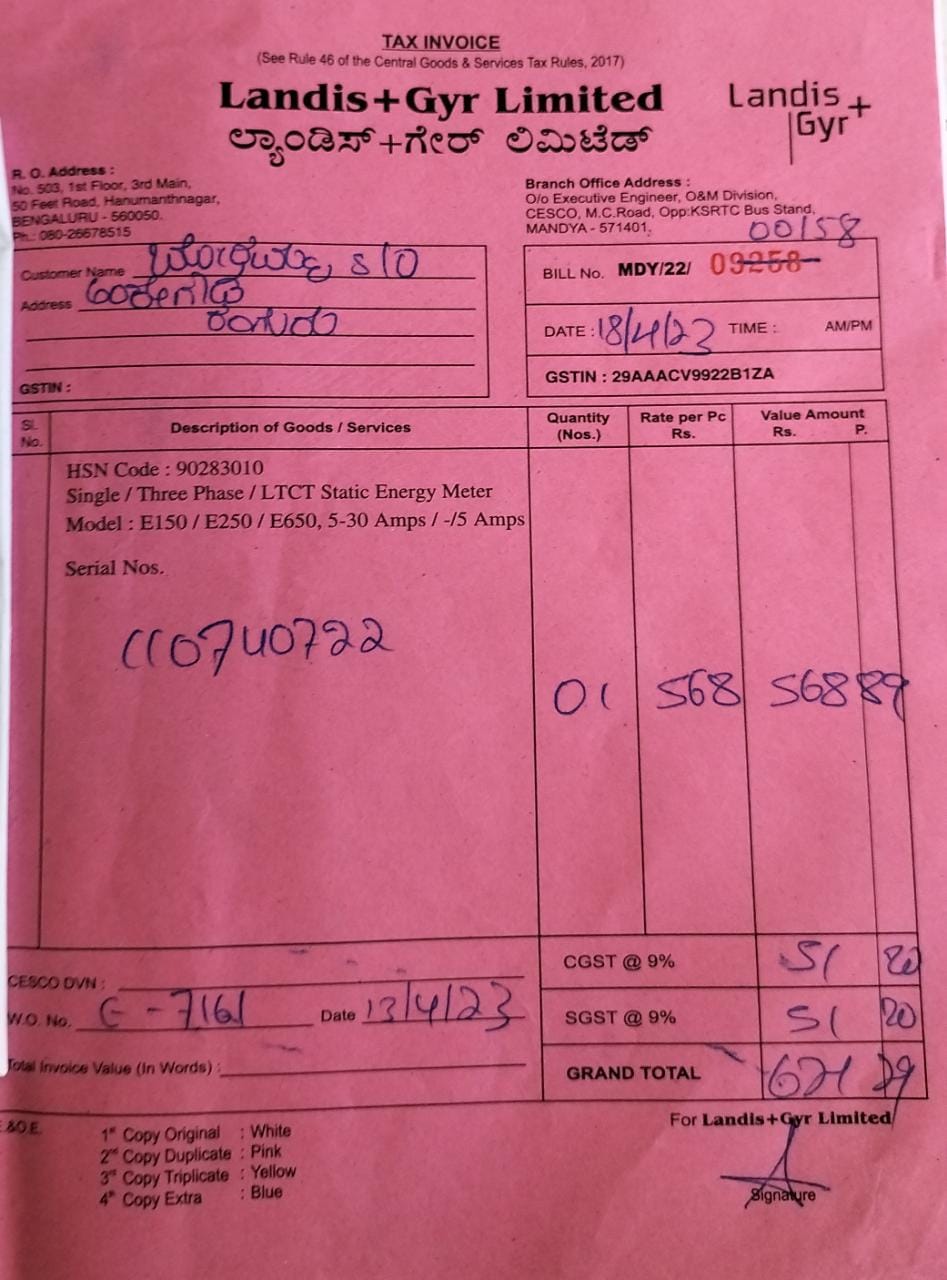 TAX INVOICE
(See Rule 46 of the Central Goods & Services Tax Rules, 2017)
Landis+Gyr Limited
ಲ್ಯಾಂಡಿಸ್+ಗೇರ್ ಲಿಮಿಟೆಡ್
Landis
Gyr+
R. O. Address :
No. 503, 1st Floor, 3rd Main,
50 Feet Road, Hanumanthnagar,
BENGALURU - 560050.
Ph.: 080-26678515
Branch Office Address :
O/o Executive Engineer, O&M Division,
CESCO, M.C.Road, Opp:KSRTC Bus Stand,
MANDYA - 571401.
00158
Customer Name S/O
Address
GSTIN :
BILL No. MDY/22/ 09258
DATE : 18/4/23 TIME : AM/PM
GSTIN : 29AAACV9922B1ZA
Sl. No. Description of Goods / Services Quantity (Nos.) Rate per Pc Rs. Value Amount Rs. P.
HSN Code : 90283010
Single / Three Phase / LTCT Static Energy Meter
Model : E150 / E250 / E650, 5-30 Amps / -/5 Amps
Serial Nos.
110740722
01 568 568 89
CESCO DVN :
W.O. No. Date 13/4/23
Total Invoice Value (In Words) :
CGST @ 9% 51 20
SGST @ 9% 51 20
GRAND TOTAL 671 29
E.&O.E.
1st Copy Original : White
2nd Copy Duplicate : Pink
3rd Copy Triplicate : Yellow
4th Copy Extra : Blue
For Landis+Gyr Limited
Signature